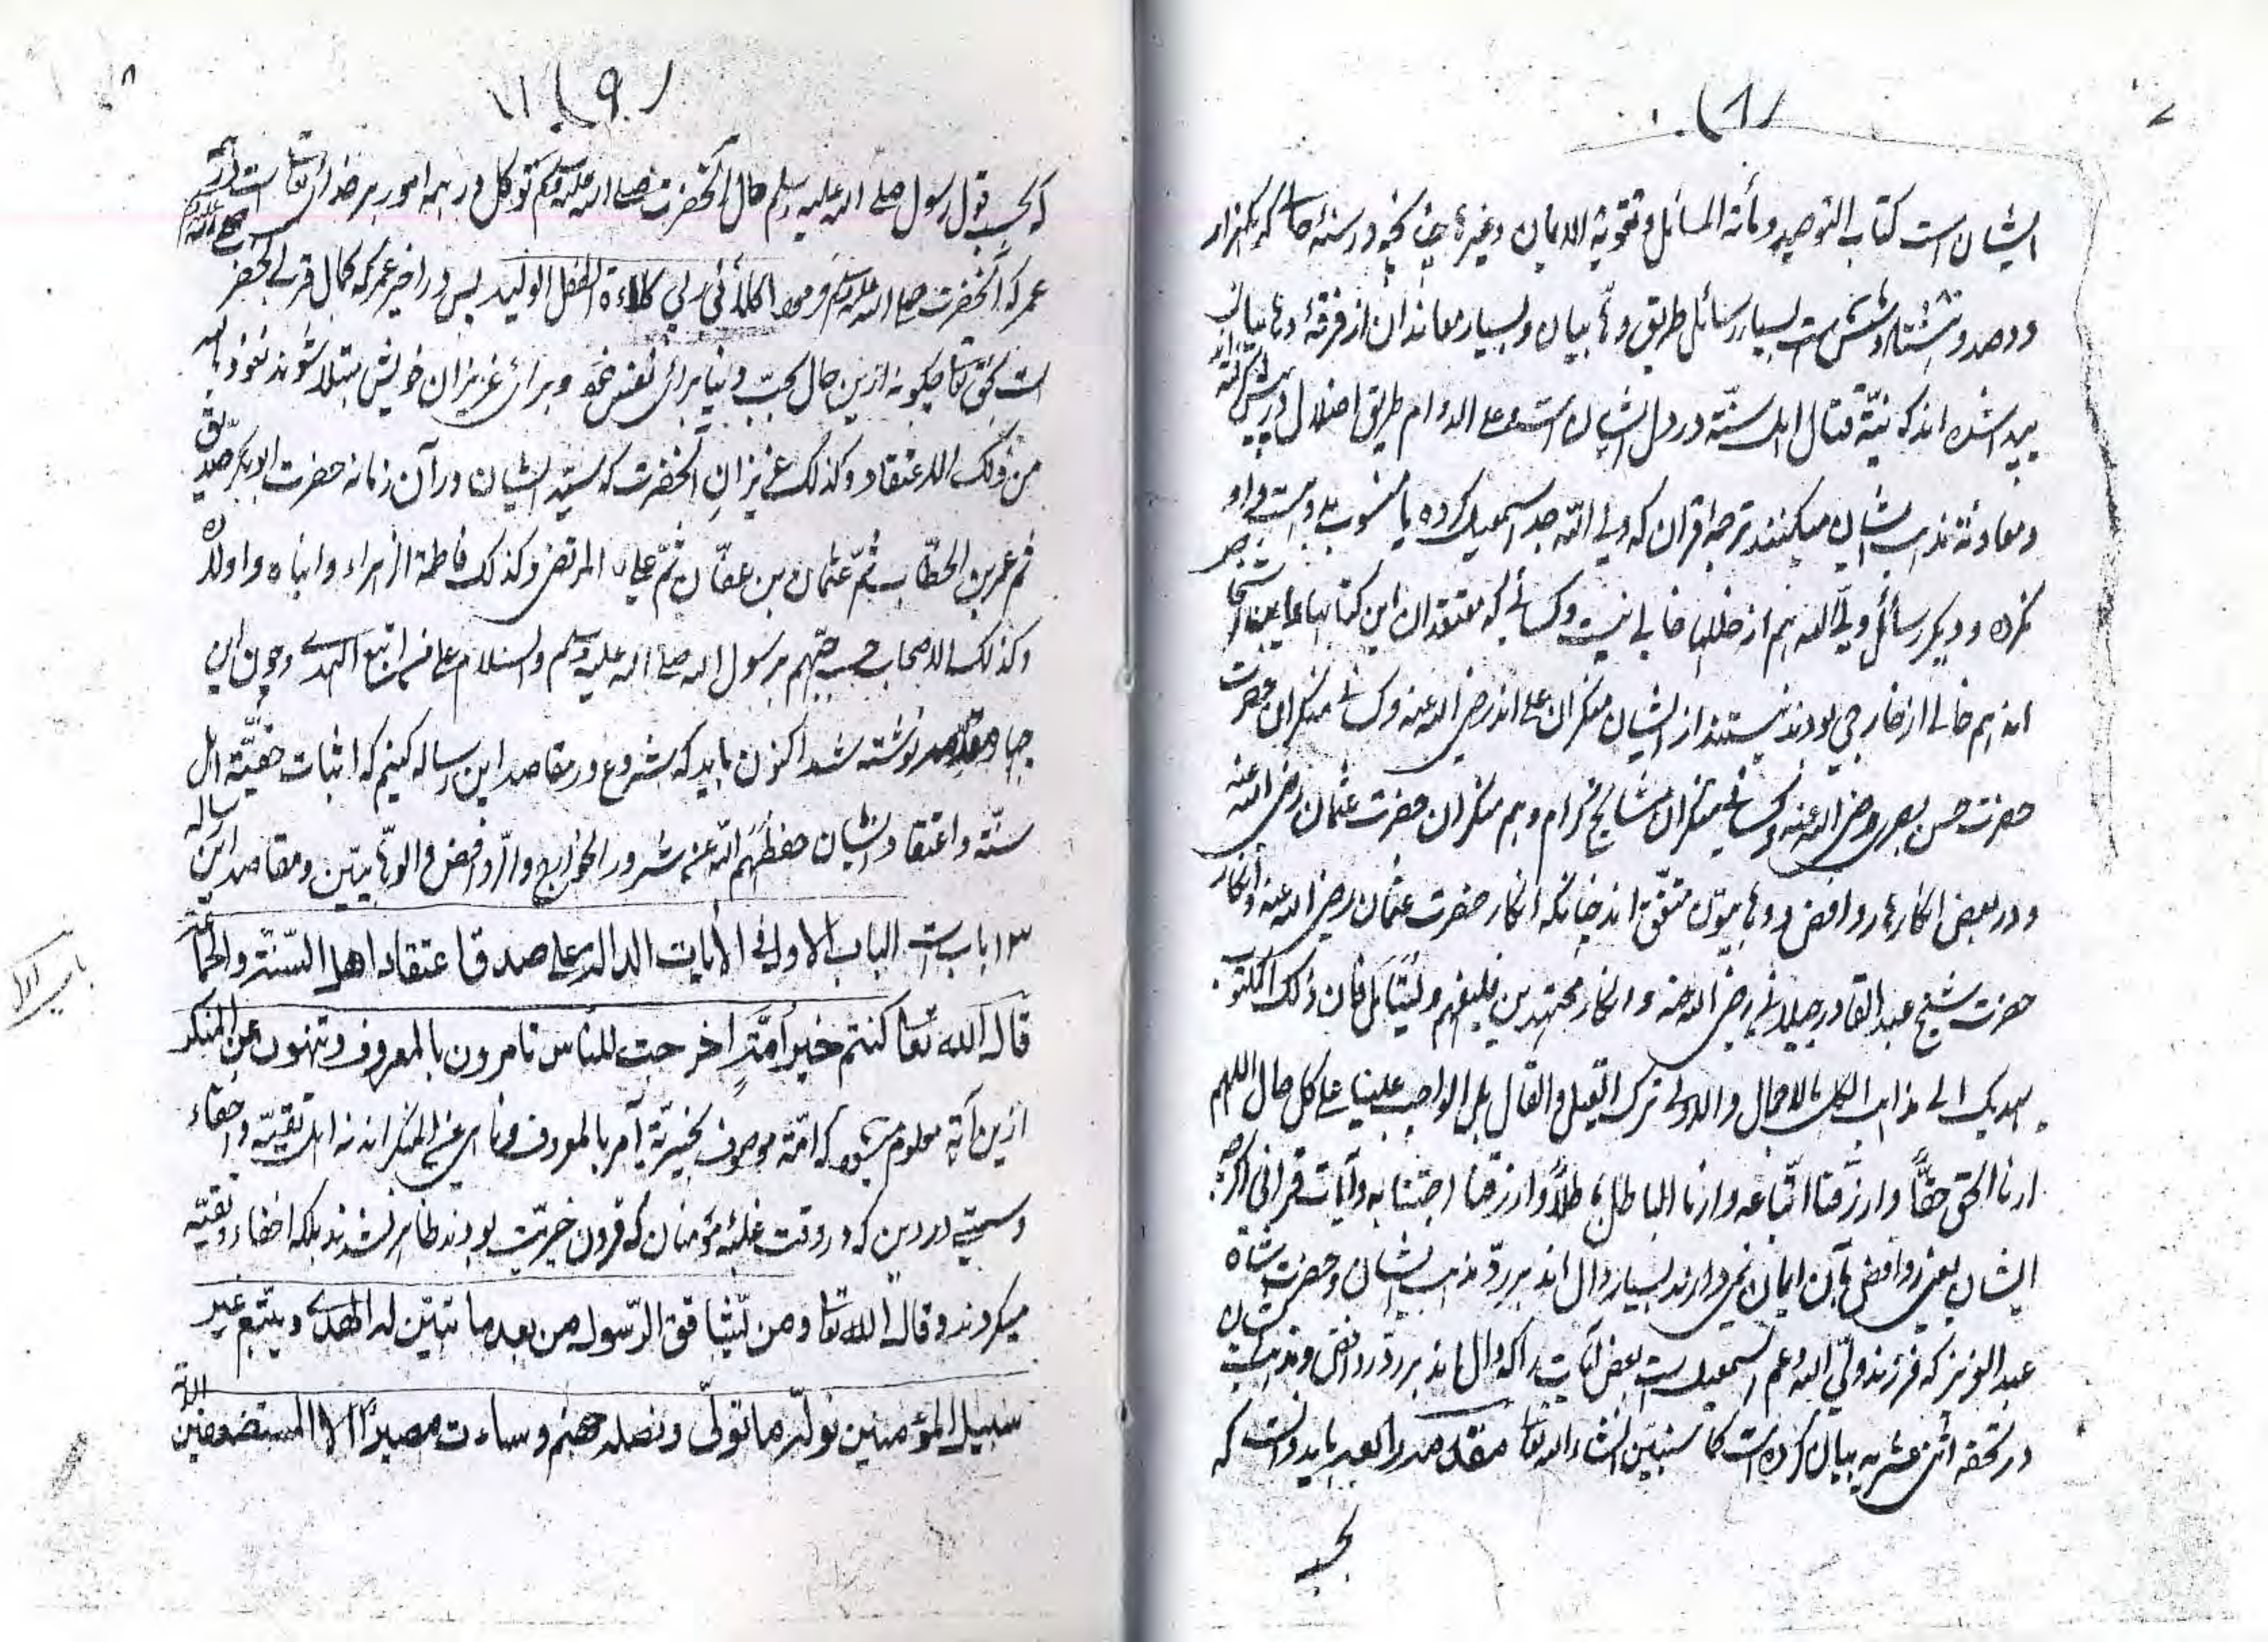 (۸)
ایشان است کتاب التوحید و مأته المسائل و تقویة الایمان وغیره چنانچه در سنۀ حال که یکهزار
دوصد و هشتاد و شش است بسیار رسائل طریق وهابیان و بسیار معاندان از فرقۀ وهابیان
پیدا شده اند که نیّة قتال اهل سنّة در دل ایشان است و علی الدوام طریق اضلال در پیش گرفته اند
و معاونة مذهب ایشان میکنند ترجمه قرآن که ولی اللّه جد اسمعیل کرده یا منسوب بوی است و او
نکرده و دیگر رسائل ولی الله هم از خللها خالی نیست و کسانی که معتقدان این کتابها
اند هم خالی از خارجی بودند نیستند از ایشان منکران علی اند رضی الله عنه و کسانی منکران حضرت
حضرت حسن بصری رضی الله عنه و کسانی منکران مشایخ کرام و هم منکران حضرت عثمان رضی الله عنه
و در بعض انکارها روافض و وهابیون متفّق اند چنانکه انکار حضرت عثمان رضی الله عنه و انکار
حضرت شیخ عبد القادر جیلانی رضی الله عنه و انکار مجتهدین فلیفهم ولیتأمل فان ذلک المکتوب
یهدیک الی مذاهب الکل بالاجمال والاولی ترک القیل والقال بل الواجب علینا علی کل حال اللهم
ارنا الحق حقًّا وارزقنا اتّباعه وارنا الباطل باطلاً وارزقنا اجتنابه و آیات قرآنی اگرچه
ایشان یعنی روافض بآن ایمان نمی دارند بسیار دال اند بر ردّ مذهب ایشان و حضرت شاه
عبد العزیز که فرزند ولی الله و عم اسمعیل است بعض آیات را که دال اند بر ردّ روافض و مذهب ایشان
در تحفه اثنی عشریه بیان کرده است کما سنبیّن انشاء الله تعا مقدمه رابعه باید دانست که
بحسب
(۹)
که بحسب قول رسول صلی الله علیه وسلم حال آنحضرت صلی الله علیه وسلم توکل در همه امور بر خدا تعا است
عمر که آنحضرت صلی الله علیه وسلم فرموده اکلأنی ربی کلاءة الطفل الولید پس در اخیر عمر که کمال قرب آنحضرت
است بحق تعا چگونه ازین حال بحبّ دنیا برای نفس خود و برای عزیزان خویش مبتلا شوند نعوذ بالله
من ذلک الاعتقاد وکذلک عزیزان آنحضرت که سیّد ایشان در آن زمانه حضرت ابوبکر صدیق
ثم عمر بن الخطّاب ثمّ عثمان بن عفّان ثمّ علی المرتضی وکذلک فاطمة الزهراء وابناه واولاده
وکذلک الاصحاب حسب حبّهم برسول الله صلی الله علیه وسلم والسلام علی من اتبع الهدی و چون این
چهار مقدمه نوشته شد اکنون باید که شروع در مقاصد این رساله کنیم که اثبات حقیّة اهل
سنّة و اعتقاد ایشان حفظهم اللّه عن شرور الخوارج والرّوافض والوهابیّین و مقاصد این رساله
سه باب است الباب الاول فی الآیات الدالة علی صدق اعتقاد اهل السّنّة والجماعة
قال الله تعا کنتم خیر امّةٍ اخرجت للناس تامرون بالمعروف وتنهون عن المنکر
ازین آیة معلوم میشود که امّة موصوف بخیریّة آمر بالمعروف و ناهی عن المنکر اند نه اهل تقیّه و اخفاء
و سستی در دین که در وقت غلبۀ مؤمنان که قرون خیریّت بودند ظاهر نشدند بلکه اخفاء و تقیّه
میکردند و قال اللّه تعا ومن یّشاقق الرّسول من بعد ما تبیّن له الهدی ویتّبع غیر
سبیل المؤمنین نولّه ما تولّی ونصله جهنم وساءت مصیرًا الا المستضعفین